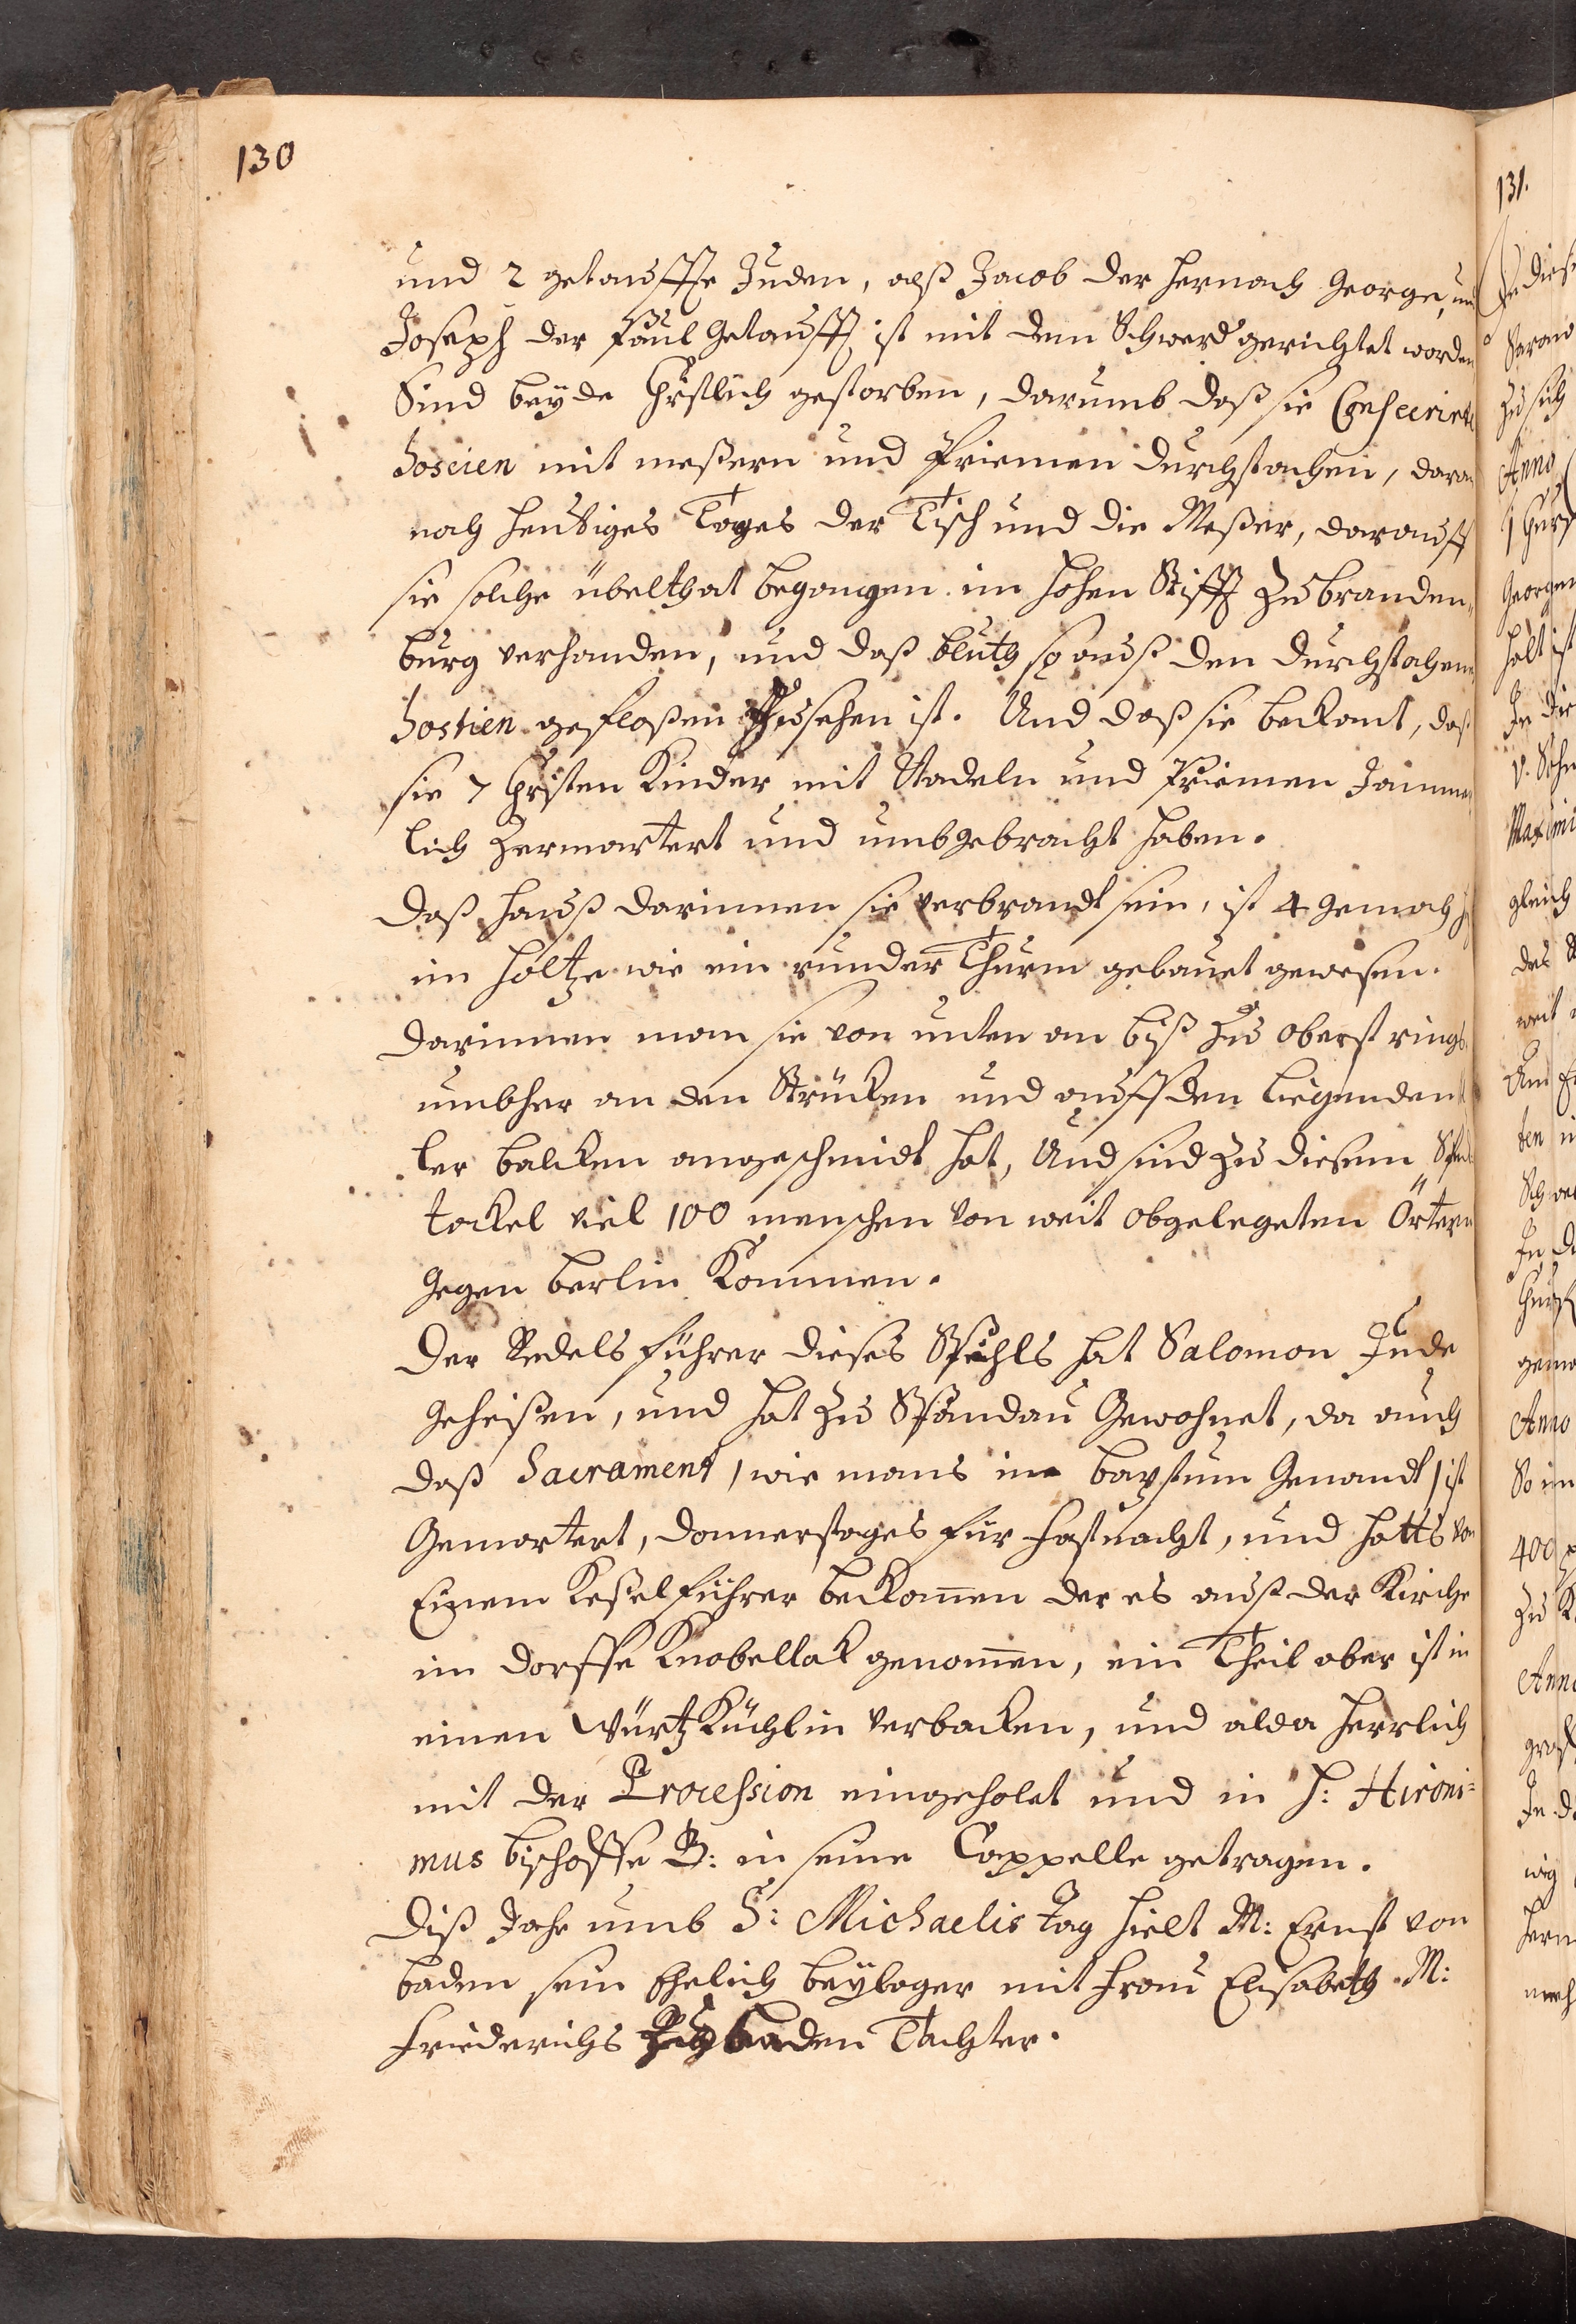 130
und 2 getauffte Juden, alß Jacob der hernach George, und
Joseph der Paul getaufft ist mit dem Schwerd gerichtet worden
Sind beyde Christlich gestorben, darumb daß sie Consecrirte
Hostien mit meßern und Priemen durchstochen, davon
noch heutiges Tages der Tisch und die Meßer, darauff
sie solche übelthat begangen im hohen Stifft zu branden,,
burg verhanden, und daß bluth so auß den durchstochenen
Hostien gefloßen zusehen ist. Und daß sie bekant, daß
sie 7 Christen Kinder mit Nadeln und Priemen Jämmer
lich Zermartert und umbgebracht haben.
Daß Hauß darinnen sie verbrandt sein, ist 4 gemach
im Holtze wie ein runder Thurm gebauet gewesen.
Darinnen man sie von unten an biß zu oberst rings
umbher an den Stücken und auff den liegenden
ler balcken angeschmidt hat, Und sind zu diesem Spec
tackel viel 100 menschen von weit abgelegeten Örtern
gegen berlin Kommen.
Der Redelsführer dieses Spiehls hat Salomon Jude
geheißen, und hat zu Spandau Gewohnet, da auch
daß Sacrament / wie mans im bapstum Genandt / ist
Gemartert, donnerstages für fastnacht, und hatts von
Einem Keßelführer bekommen der es auß der Kirche
im dorffe Knobellak genommen, ein Theil aber ist in
einen Würtz Küchlin verbacken, und alda herrlich
mit der Procession eingeholet und in H: Hironi=
mus bischoffe B: in seine Cappelle getragen.
Diß Jahr umb S: Michaelis Tag hielt M: Ernst von
baden sein Ehelich beylager mit frau Elisabeth M:
Friederichs Zu baden Tochter.
131.
Anno
Georgen
gleich
des
weit
Anno
So im
400
zu
Anno